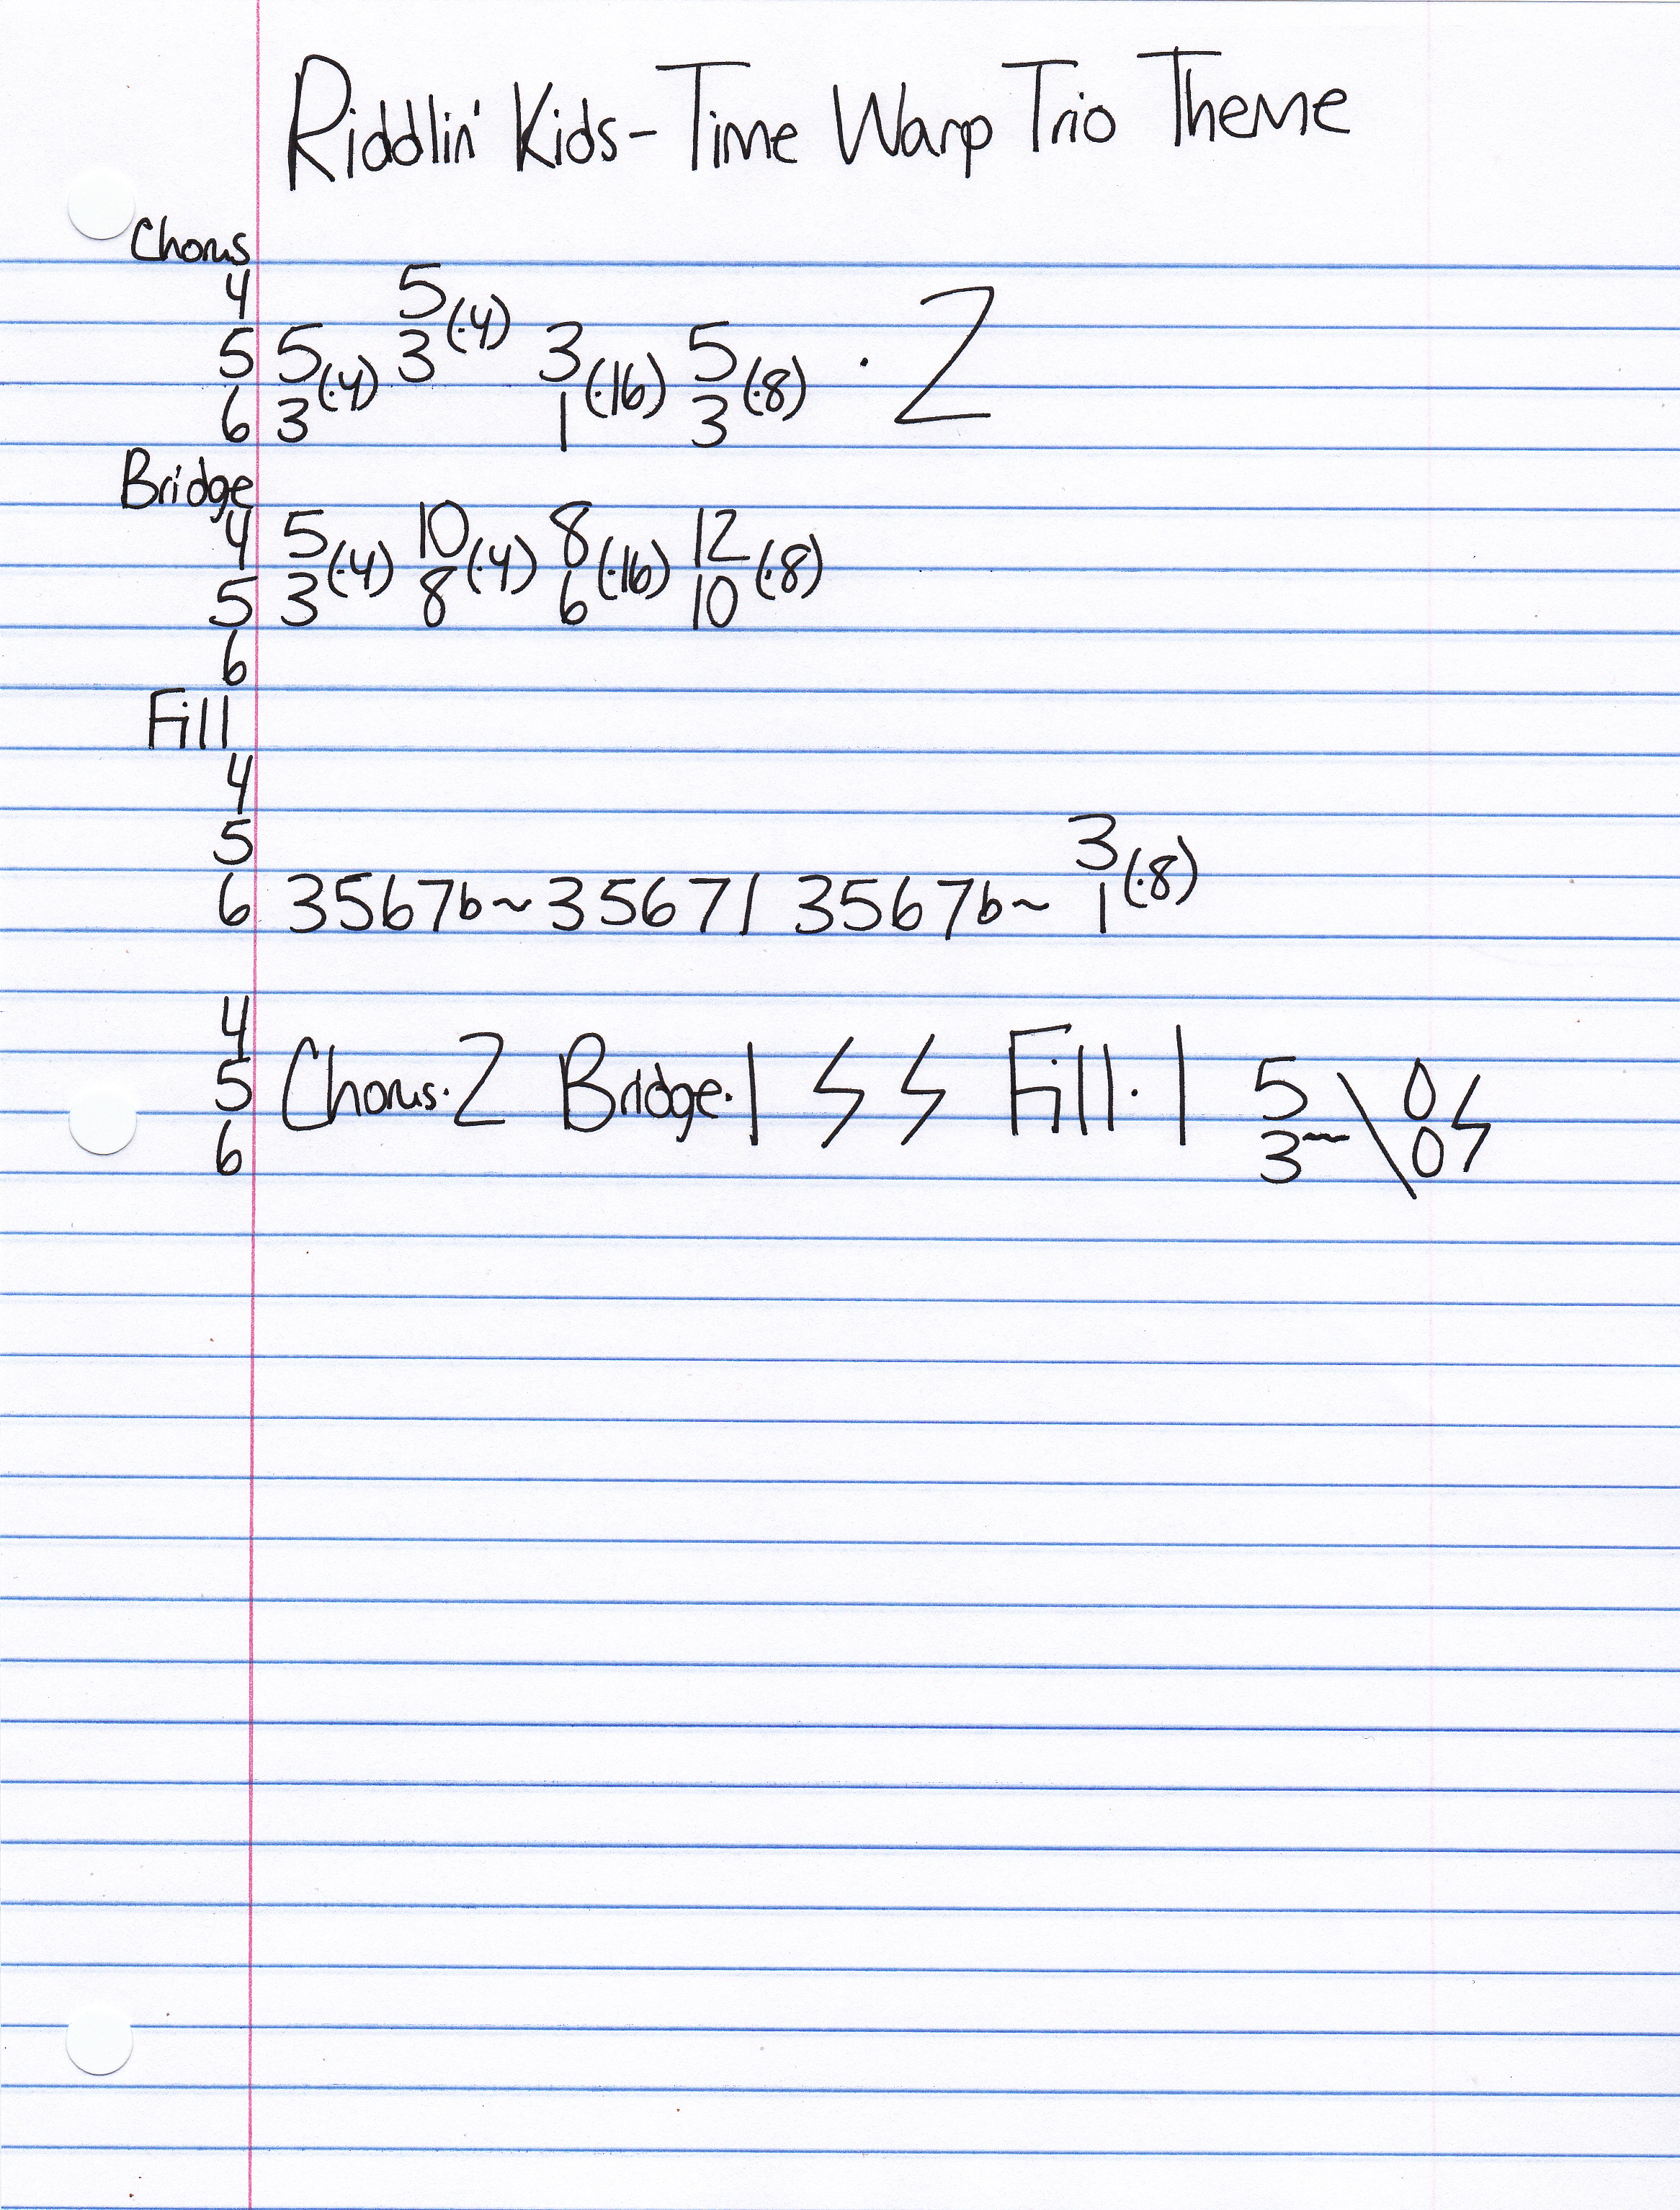 Riddlin' Kids - Time Warp Trio Theme
Chorus
4 5(·4)
5 5(·4) 3 3(·16) 5(·8) · 2
6 3 1 3
Bridge
4 5(·4) 10(·4) 8(·16) 12(·8)
5 3 8 6 10
6
Fill
4
5 3(·8)
6 3567b~3567/ 3567b~ 1
4
5 Chorus·2 Bridge·1 ϟ ϟ Fill·1 5 \ 0 ϟ
6 3~ 0